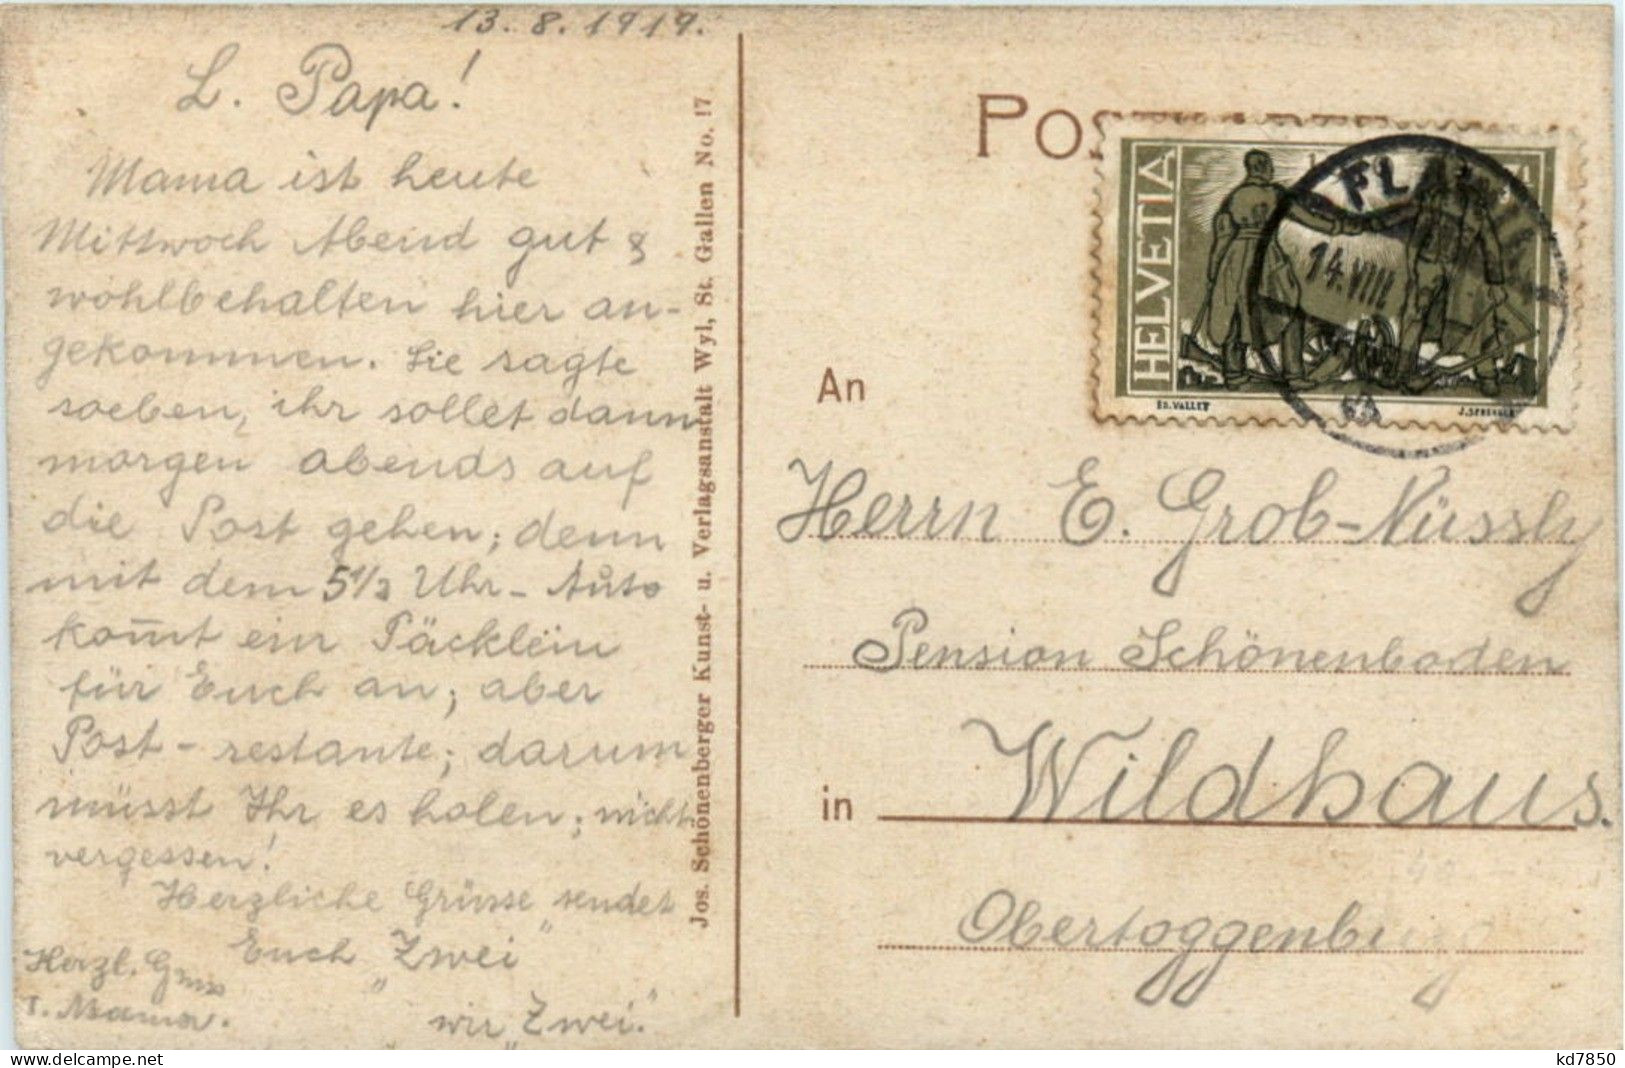 13. 8. 1919.
L. Papa!
Mama ist heute
Mittwoch Abend gut &
wohlbehalten hier an-
gekommen. Sie sagte
soeben, ihr sollet dann
morgen abends auf
die Post gehen; denn
mit dem 5 1/2 Uhr - Auto
kom̄t ein Päcklein
für Euch an; aber
Post - restante; darum
müsst Ihr es holen; nicht
vergessen!
Herzliche Grüsse sendet
Euch „Zwei"
wir „Zwei."
Herzl. Gruss
v. Mama.
Jos. Schönenberger Kunst- u. Verlagsanstalt Wyl, St. Gallen No. 17
Pos
HELVETIA
ED. VALLET
FLAWIL
14. VIII
An
Herrn E. Grob-Nüssly
Pension Schönenboden
in Wildhaus.
Obertoggenburg
kd7850